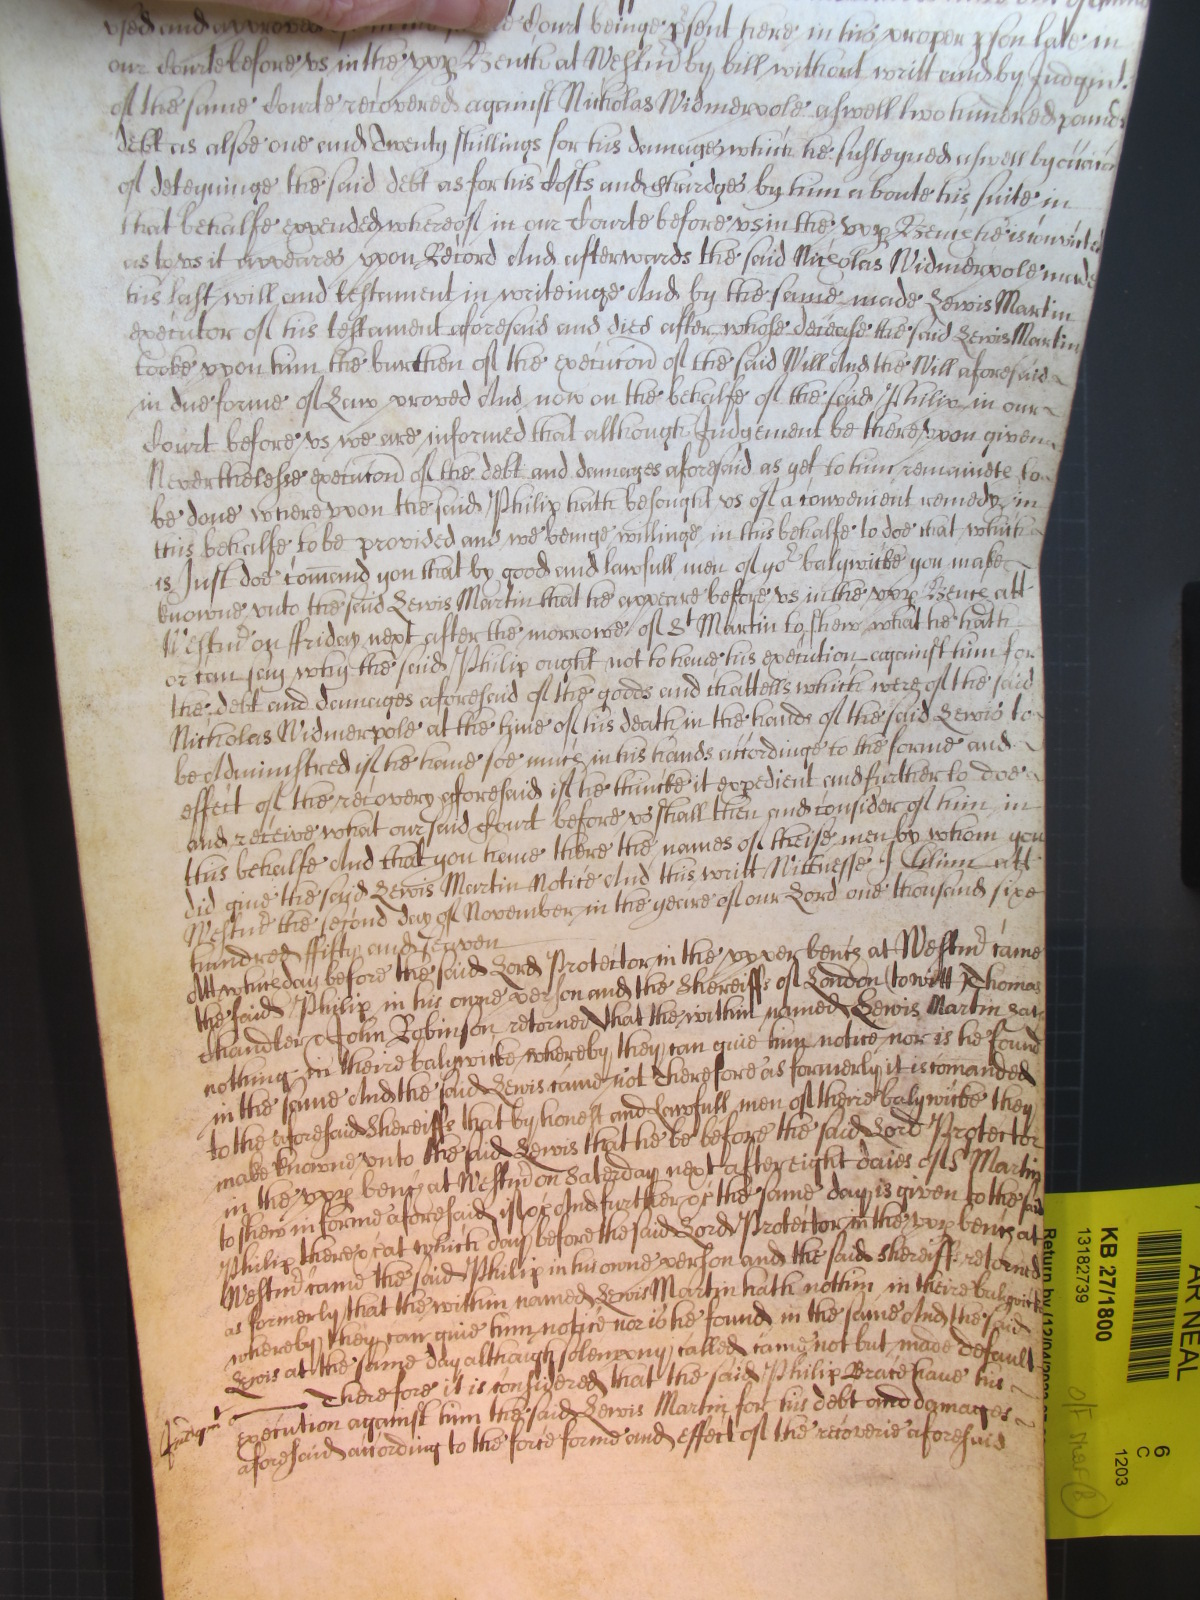 used and approved of in the said Court beinge psent here in his proper pson late in
our Courte before us in the upp Bench at Westmr by bill without writt and by Judgmt
of the same Courte recovered against Nicholas Widmerpole aswell two hundred pounds
debt as alsoe one and Twenty shillings for his damages which he susteyned aswell by occasion
of deteyninge the said debt as for his Costs and Chardges by him aboute his suite in
that behalfe expended whereof in our Courte before us in the upp Bench he is convicted
as to us it appeares upon Record And afterwards the said Nicolas Widmerpole made
his last will and testament in writeinge And by the same made Lewis Martin
executor of his testament aforesaid and died after whose decease the said Lewis Martin
tooke upon him the burthen of the execucon of the said Will And the Will aforesaid
in due forme of Law proved And now on the behalfe of the said Philip in our
Court before us we are informed that although Judgement be thereupon given
Neverthelesse execucon of the debt and damages aforesaid as yet to him remaineth to
be done whereupon the said Philip hath besought us of a convenient remedy in
this behalfe to be provided and we beinge willinge in this behalfe to doe that which
is Just doe comand you that by good and lawfull men of yor balywicke you make
knowne unto the said Lewis Martin that he appeare before us in the upp Bench att
Westmr on ffriday next after the morrowe of St Martin to shew what he hath
or can say why the said Philip ought not to have his execution against him for
the debt and damages aforesaid of the goods and chattells which were of the said
Nicholas Widmerpole at the time of his death in the hands of the said Lewis to
be Administred if he have soe much in his hands accordinge to the forme and
effect of the recovery aforesaid if he thincke it expedient and further to doe
and receive what our said Court before us shall then and consider of him in
this behalfe And that you have there the names of theise men by whom you
did give the said Lewis Martin Notice And this writt Wittnesse att
Westmr the second day of November in the yeare of our Lord one thousand sixe
hundred ffifty and seaven
Att which day before the said Lord Protector in the upper bench at Westmr came
the said Philip in his owne person and the Shereiffs of London (to witt) Thomas
Chandler & John Robinson retorned that the within named Lewis Martin hath
nothing in theire balywicke whereby they can give him notice nor is he found
in the same And the said Lewis came not Therefore as formerly it is comanded
to the aforesaid Shereiffs that by honest and Lawfull men of theire balywicke they
make knowne unto the said Lewis that he be before the said Lord Protector
in the upp bench at Westmr on Saturday next after eight daies of St Martin
to shew in forme aforesaid if &c And further &c the same day is given to the said
Philip there &c at which day before the said Lord Protector in the upp bench at
Westmr came the said Philip in his owne person and the said Shereiffs retorned
as formerly that the within named Lewis Martin hath nothin in theire balywicke
whereby they can give him notice nor is he found in the same And the said
Lewis at the same day although solempny called came not but made Default
Therefore it is considered that the said Philip Brace have his
Judgmt
execution against him the said Lewis Martin for his debt and damages
aforesaid according to the force forme and effect of the recoverie aforesaid
AR NEAL
KB 27/1800
13182739
6
C
1203